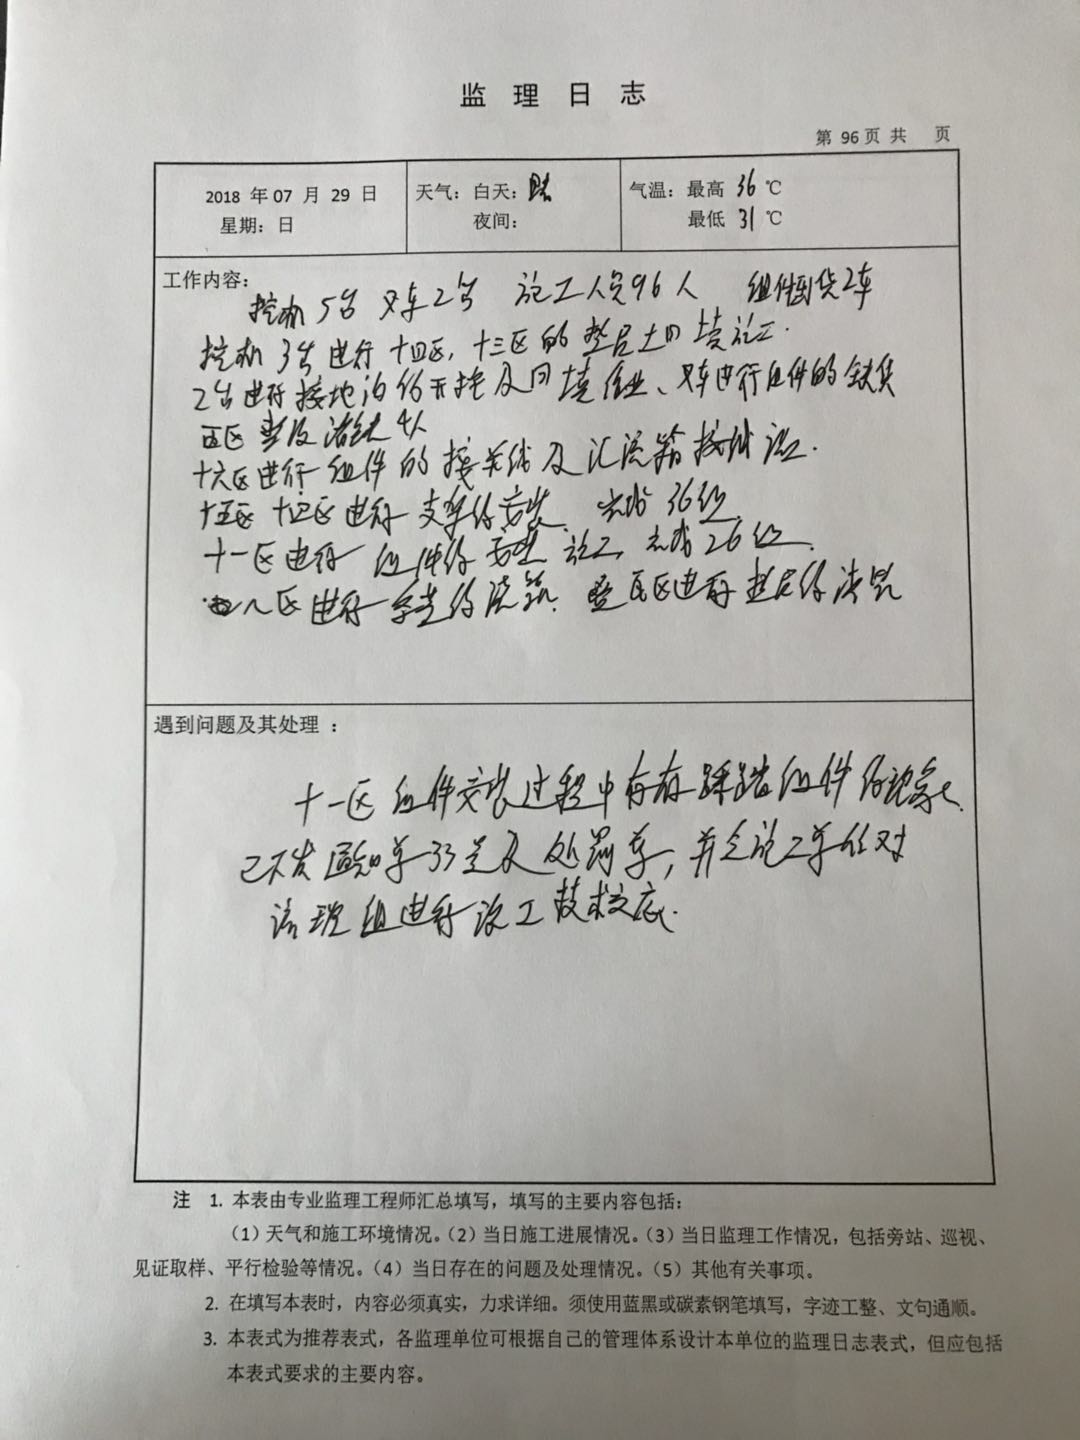 监理日志
第 96页 共 页
2018 年 07 月 29 日
天气：白天：晴
气温：最高 36 ℃
星期：日
夜间：
最低 31 ℃
工作内容：
挖机5台 叉车2台 施工人员96人 组件到货2车
挖机3台进行十四区，十三区的垫层土回填施工.
2台进行接地沟的开挖及回填作业、叉车进行组件的
五区 4人
十六区进行组件的接关线及汇流箱接线施工.
十五区十四区进行支架的安装. 完成36组.
十一区进行组件的安装施工，完成26组.
八区进行的浇筑. 区进行垫层的浇筑
遇到问题及其处理 ：
十一区组件安装过程中存在踩踏组件的现象.
已下发通知单33号及处罚单，并令施工单位对
该班组进行施工技术交底.
注 1. 本表由专业监理工程师汇总填写，填写的主要内容包括：
（1）天气和施工环境情况。（2）当日施工进展情况。（3）当日监理工作情况，包括旁站、巡视、
见证取样、平行检验等情况。（4）当日存在的问题及处理情况。（5）其他有关事项。
2. 在填写本表时，内容必须真实，力求详细。须使用蓝黑或碳素钢笔填写，字迹工整、文句通顺。
3. 本表式为推荐表式，各监理单位可根据自己的管理体系设计本单位的监理日志表式，但应包括
本表式要求的主要内容。